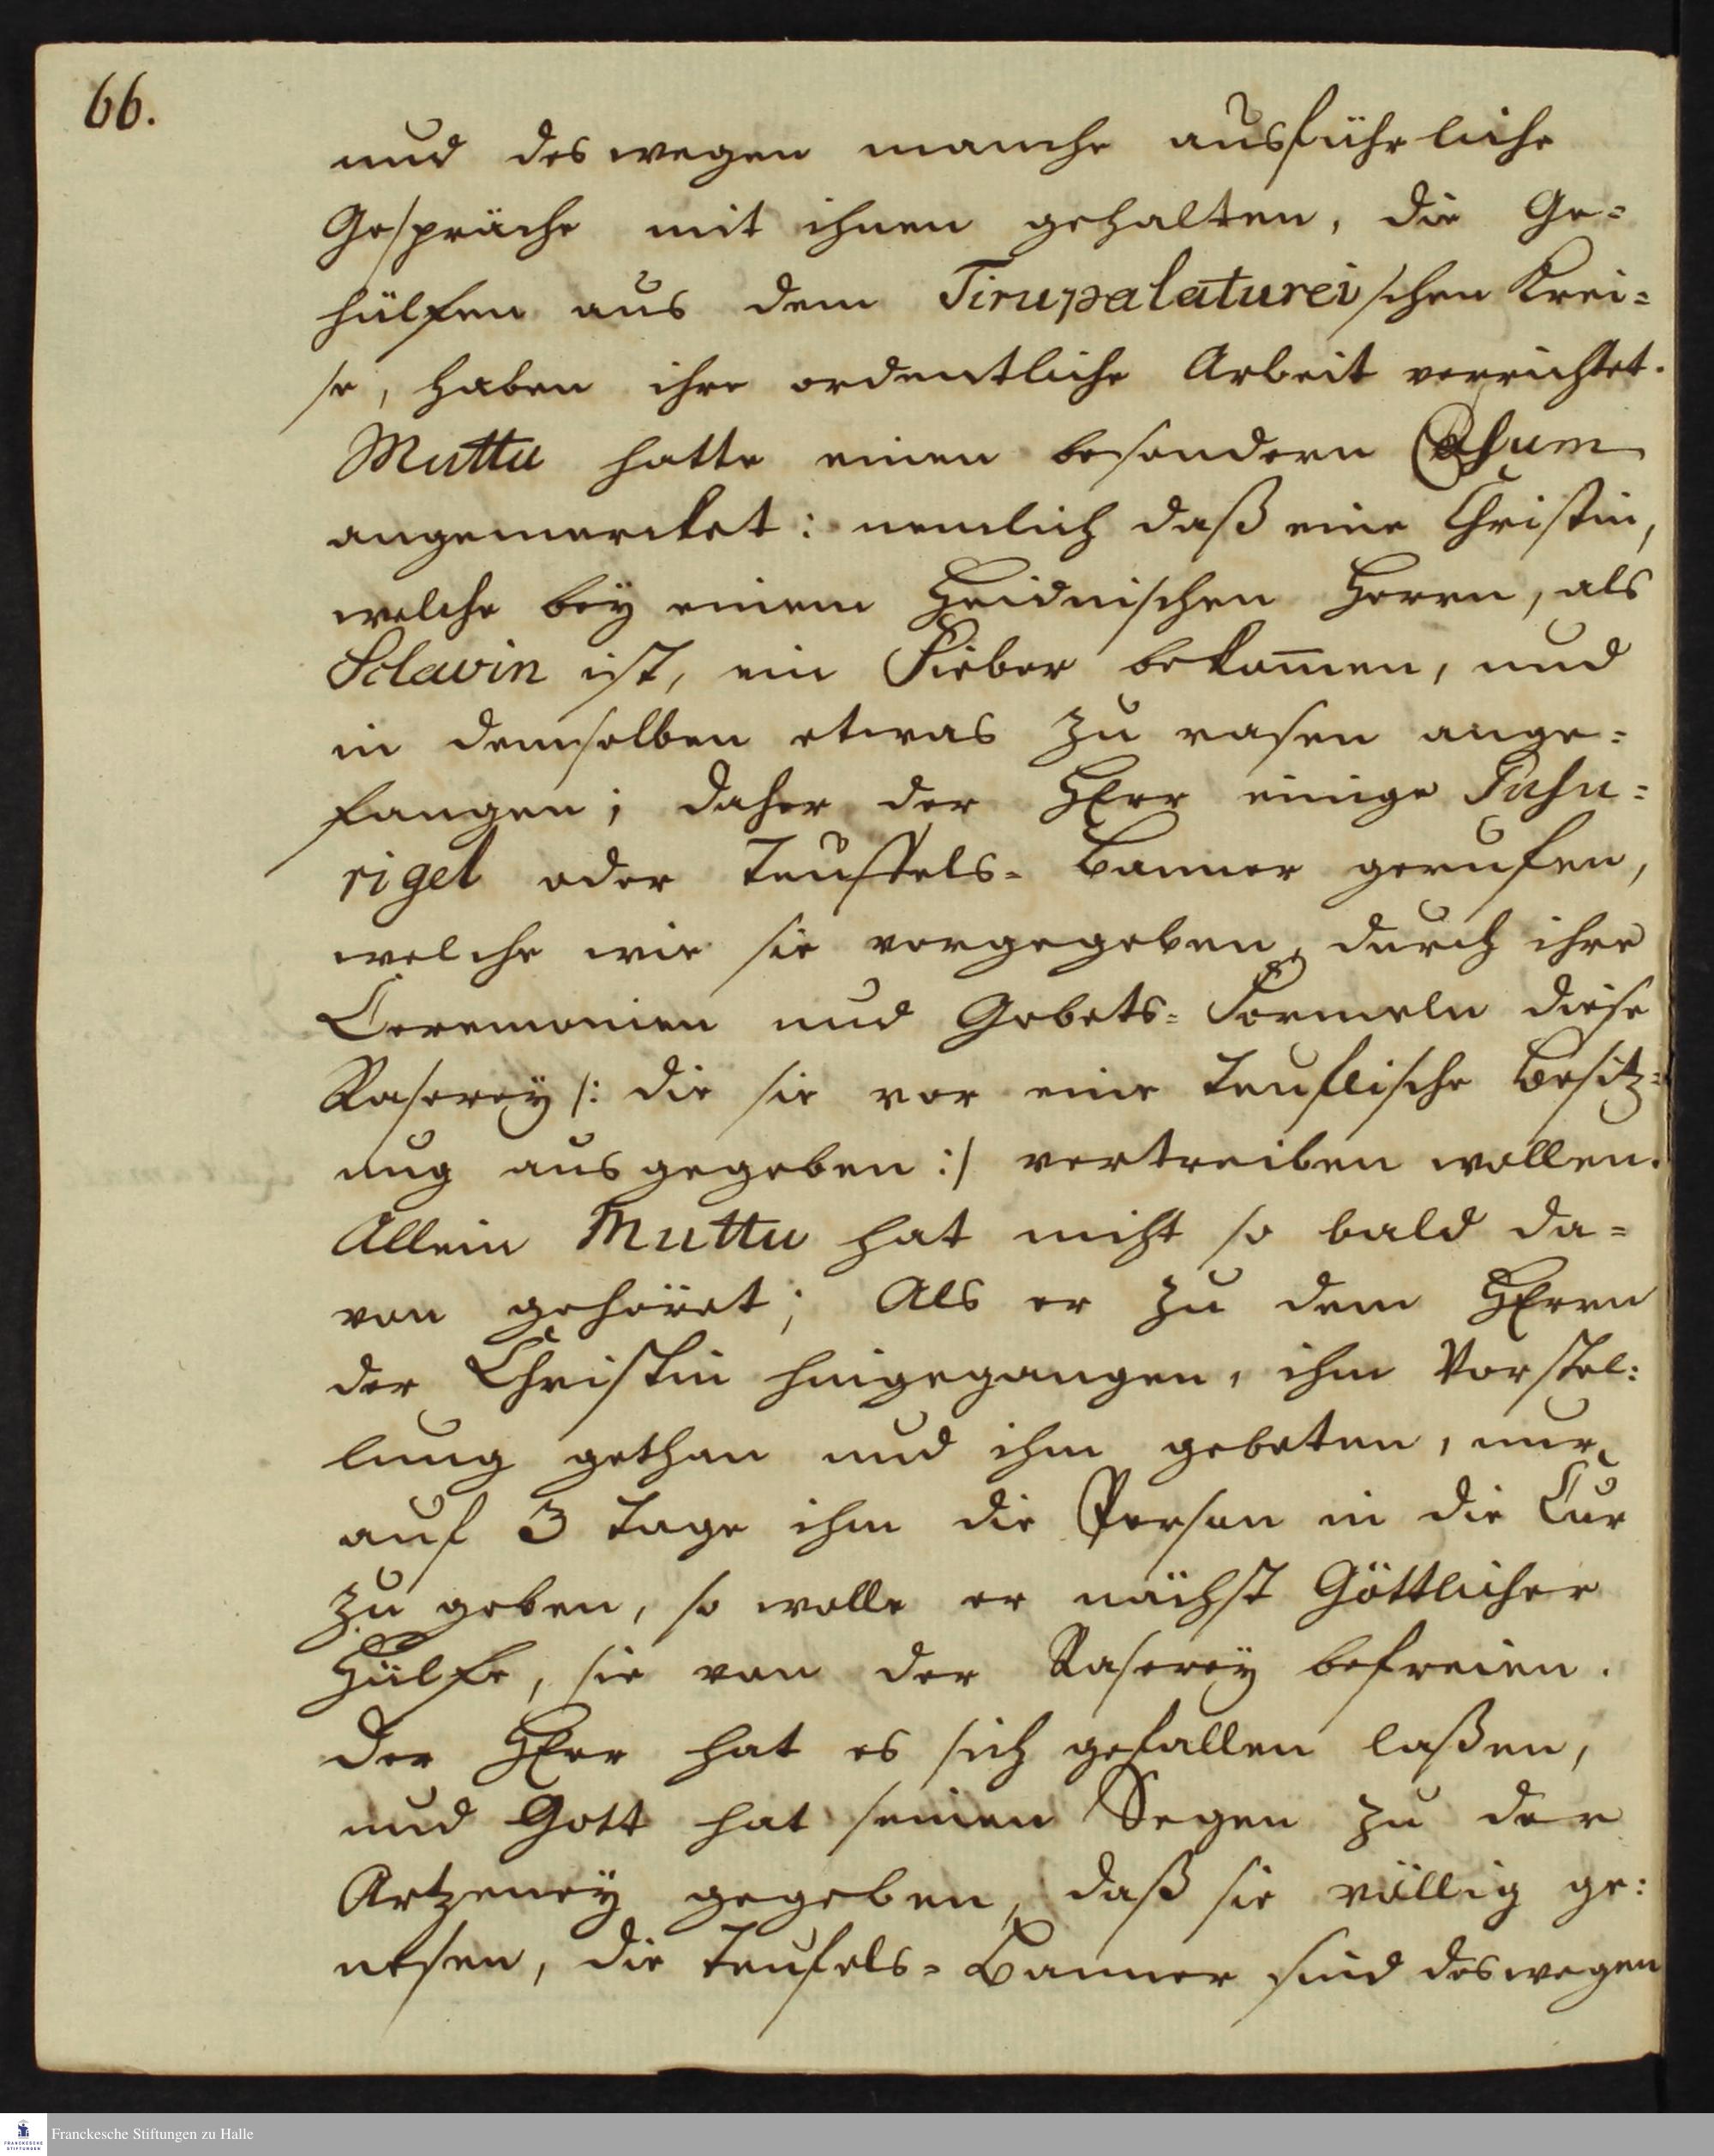 66.
und deswegen manche ausführliche
Gespräche mit ihnen gehalten, die Ge=
hülfen aus dem Tirupalatureischen Krei=
se, haben ihre ordentliche Arbeit verrichtet.
Muttu hatte einen besondern Casum
angemercket: nemlich daß eine Christin,
welche bey einem Heidnischen Herrn, als
Sclavin ist, ein Fieber bekom̄en, und
in demselben etwas zu rasen ange=
fangen; daher der HErr einige Pusu=
rigel oder Teuffels= Banner gerufen,
welche wie sie vorgegeben, durch ihre
Ceremonien und Gebets= Formeln diese
Raserey /: die sie vor eine teuflische Besitz=
ung ausgegeben :/ vertreiben wollen.
Allein Muttu hat nicht so bald da=
von gehöret; Als er zu dem HErrn
der Christin hingegangen, ihm Vorstel=
lung gethan und ihm gebeten, nur
auf 3 Tage ihm die Person in die Cur
zu geben, so wolle er nächst Göttlicher
Hülfe, sie von der Raserey befreien.
Der HErr hat es sich gefallen laßen,
und Gott hat seinen Segen zu der
Artzeney gegeben, daß sie völlig ge=
nesen, die Teufels= Banner sind deswegen
Franckesche Stiftungen zu Halle
FRANCKESCHE
STIFTUNGEN